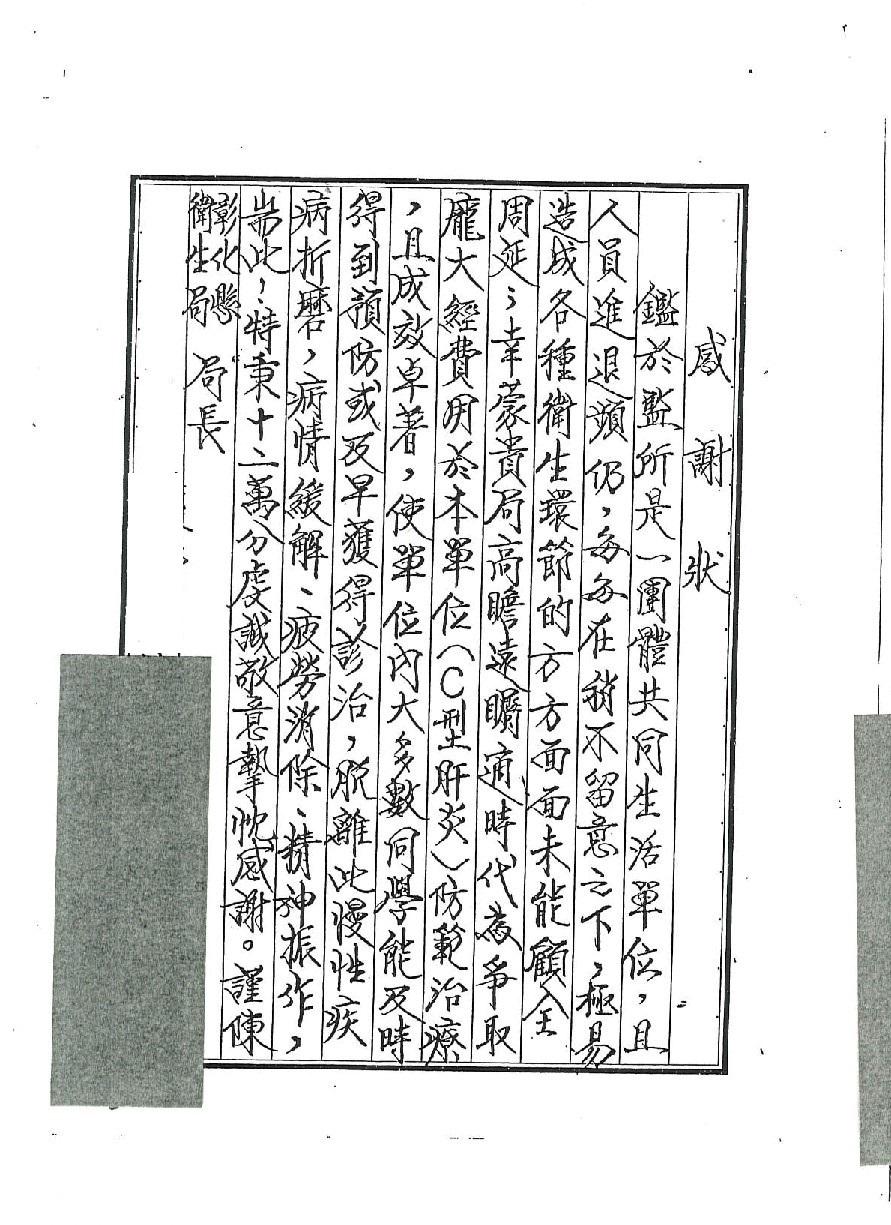 感謝狀
鑑於監所是一團體共同生活單位，且
人員進退頻仍，每每在稍不留意之下，極易
造成各種衛生環節的方方面面未能顧全
周延；幸蒙貴局高瞻遠矚，適時代為爭取
龐大經費用於本單位（C型肝炎）防範治療
，且成效卓著，使單位內大多數同學能及時
得到預防或及早獲得診治，脫離此慢性疾
病折磨，病情緩解、疲勞消除、精神振作，
耑此！特秉十二萬分虔誠敬意摯忱感謝。謹陳
彰化縣衛生局 局長